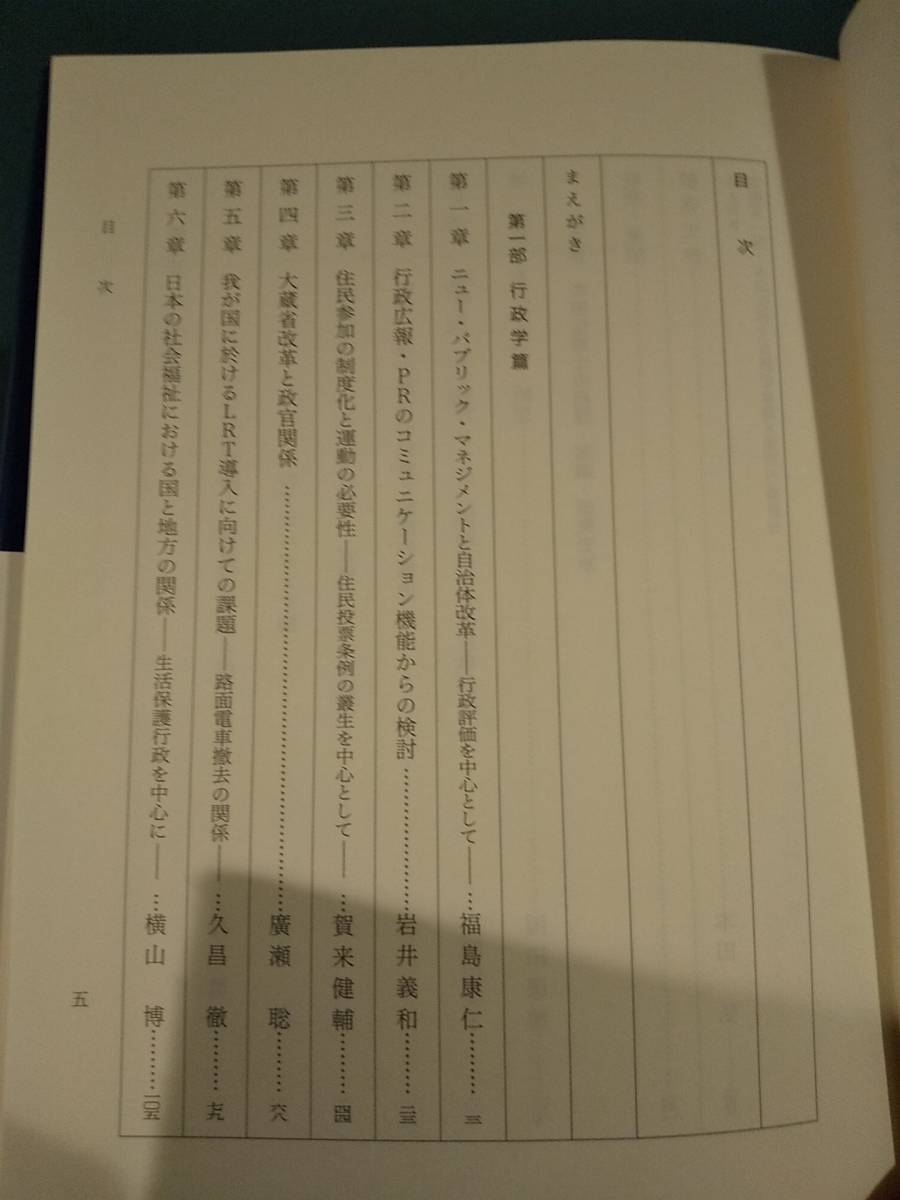 目次
まえがき
第一部 行政学篇
第一章 ニュー・パブリック・マネジメントと自治体改革――行政評価を中心として――…福島康仁………三
第二章 行政広報・PRのコミュニケーション機能からの検討…………………岩井義和………二三
第三章 住民参加の制度化と運動の必要性――住民投票条例の叢生を中心として――…賀来健輔………四四
第四章 大蔵省改革と政官関係……………………………………………………廣瀬 聡………六八
第五章 我が国に於けるLRT導入に向けての課題――路面電車撤去の関係――…久昌 徹………七九
第六章 日本の社会福祉における国と地方の関係――生活保護行政を中心に――…横山 博………一〇五
目次
五